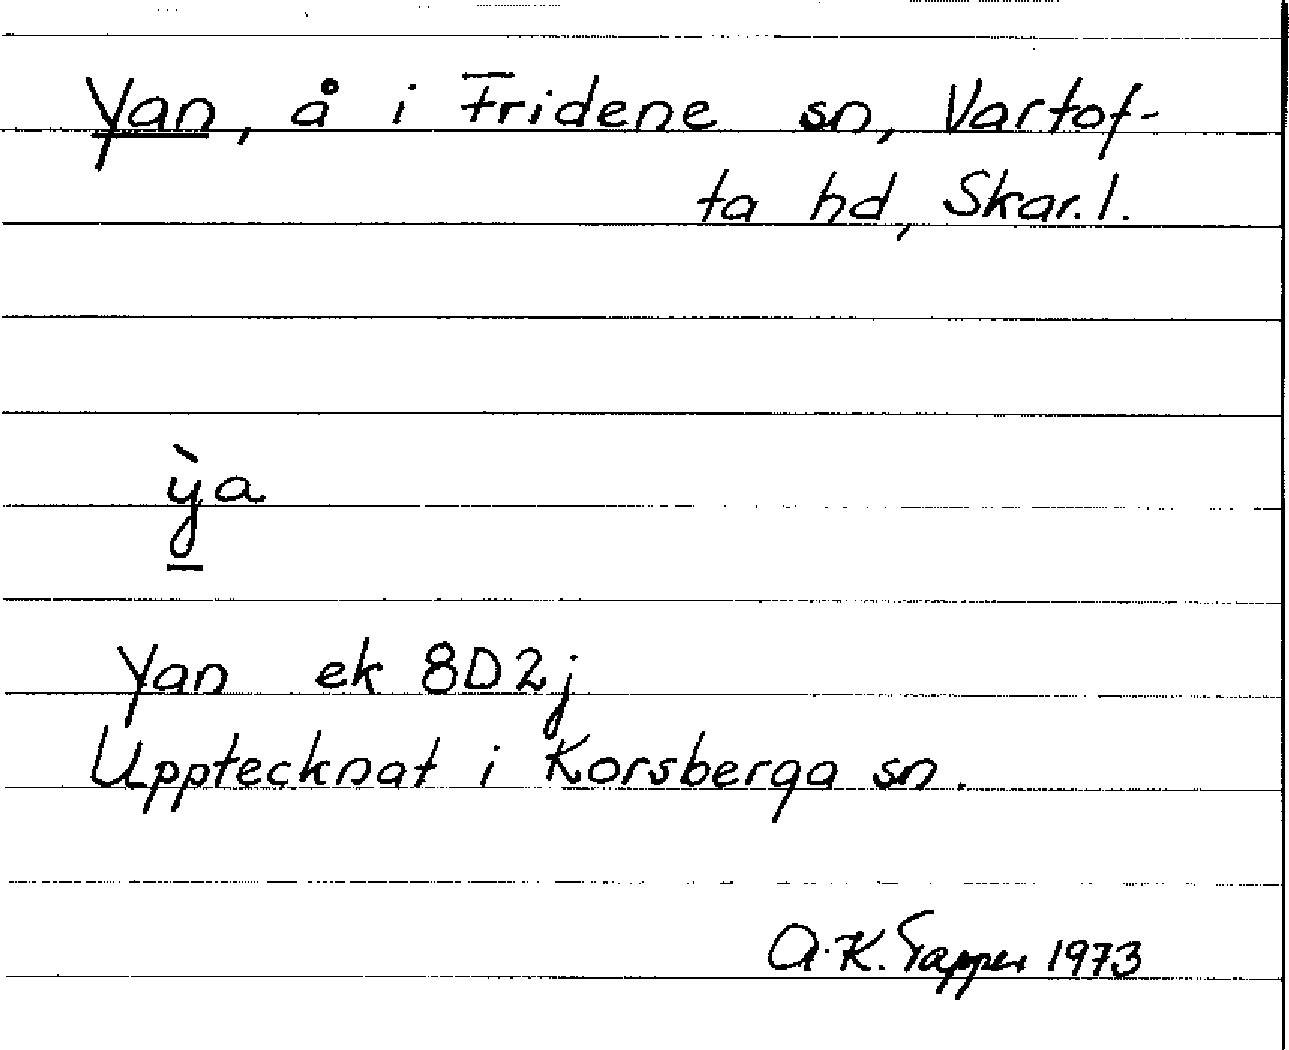 Yan, å i Fridene sn, Vartof-
ta hd, Skar. l.
ỳa
Yan ek 8D2j
Upptecknat i Korsberga sn.
A.K. Tapper 1973